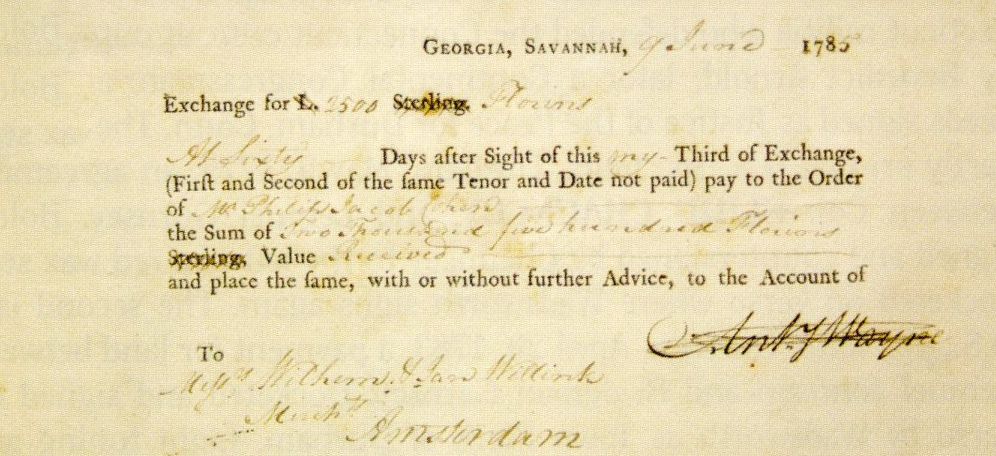 GEORGIA, SAVANNAH, 9 June 1785
Exchange for L. 2500 Sterling. Florins
At Sixty Days after Sight of this my Third of Exchange,
(Firſt and Second of the ſame Tenor and Date not paid) pay to the Order
of Mr. Philip Jacob Cohen
the Sum of Two Thousand five hundred Florins
Sterling, Value Received
and place the ſame, with or without further Advice, to the Account of
Ant.y Wayne
To
Mess.rs Wilhem & Jan Willink
Merch.ts
Amsterdam